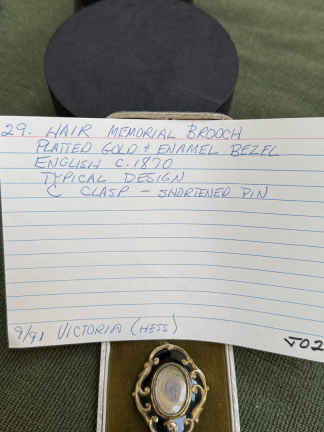 29. HAIR MEMORIAL BROOCH
PLATTED GOLD + ENAMEL BEZEL
ENGLISH C. 1870
TYPICAL DESIGN
C CLASP - SHORTENED PIN
9/91 VICTORIA (HESS)
J02